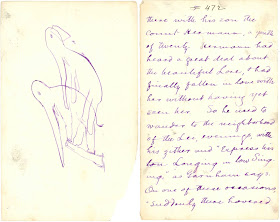 # 472
these with his son the
Count Hermann, a youth
of twenty. Hermann had
heard a great deal about
the beautiful Lore, & had
finally fallen in love with
her without having yet
seen her. So he used to
wander to the neighborhood
of the Lei, evenings, with
his zither and "Express his
Longing in low Sing-
ing," as Garnham says.
On one of these occasions
"suddenly there hovered